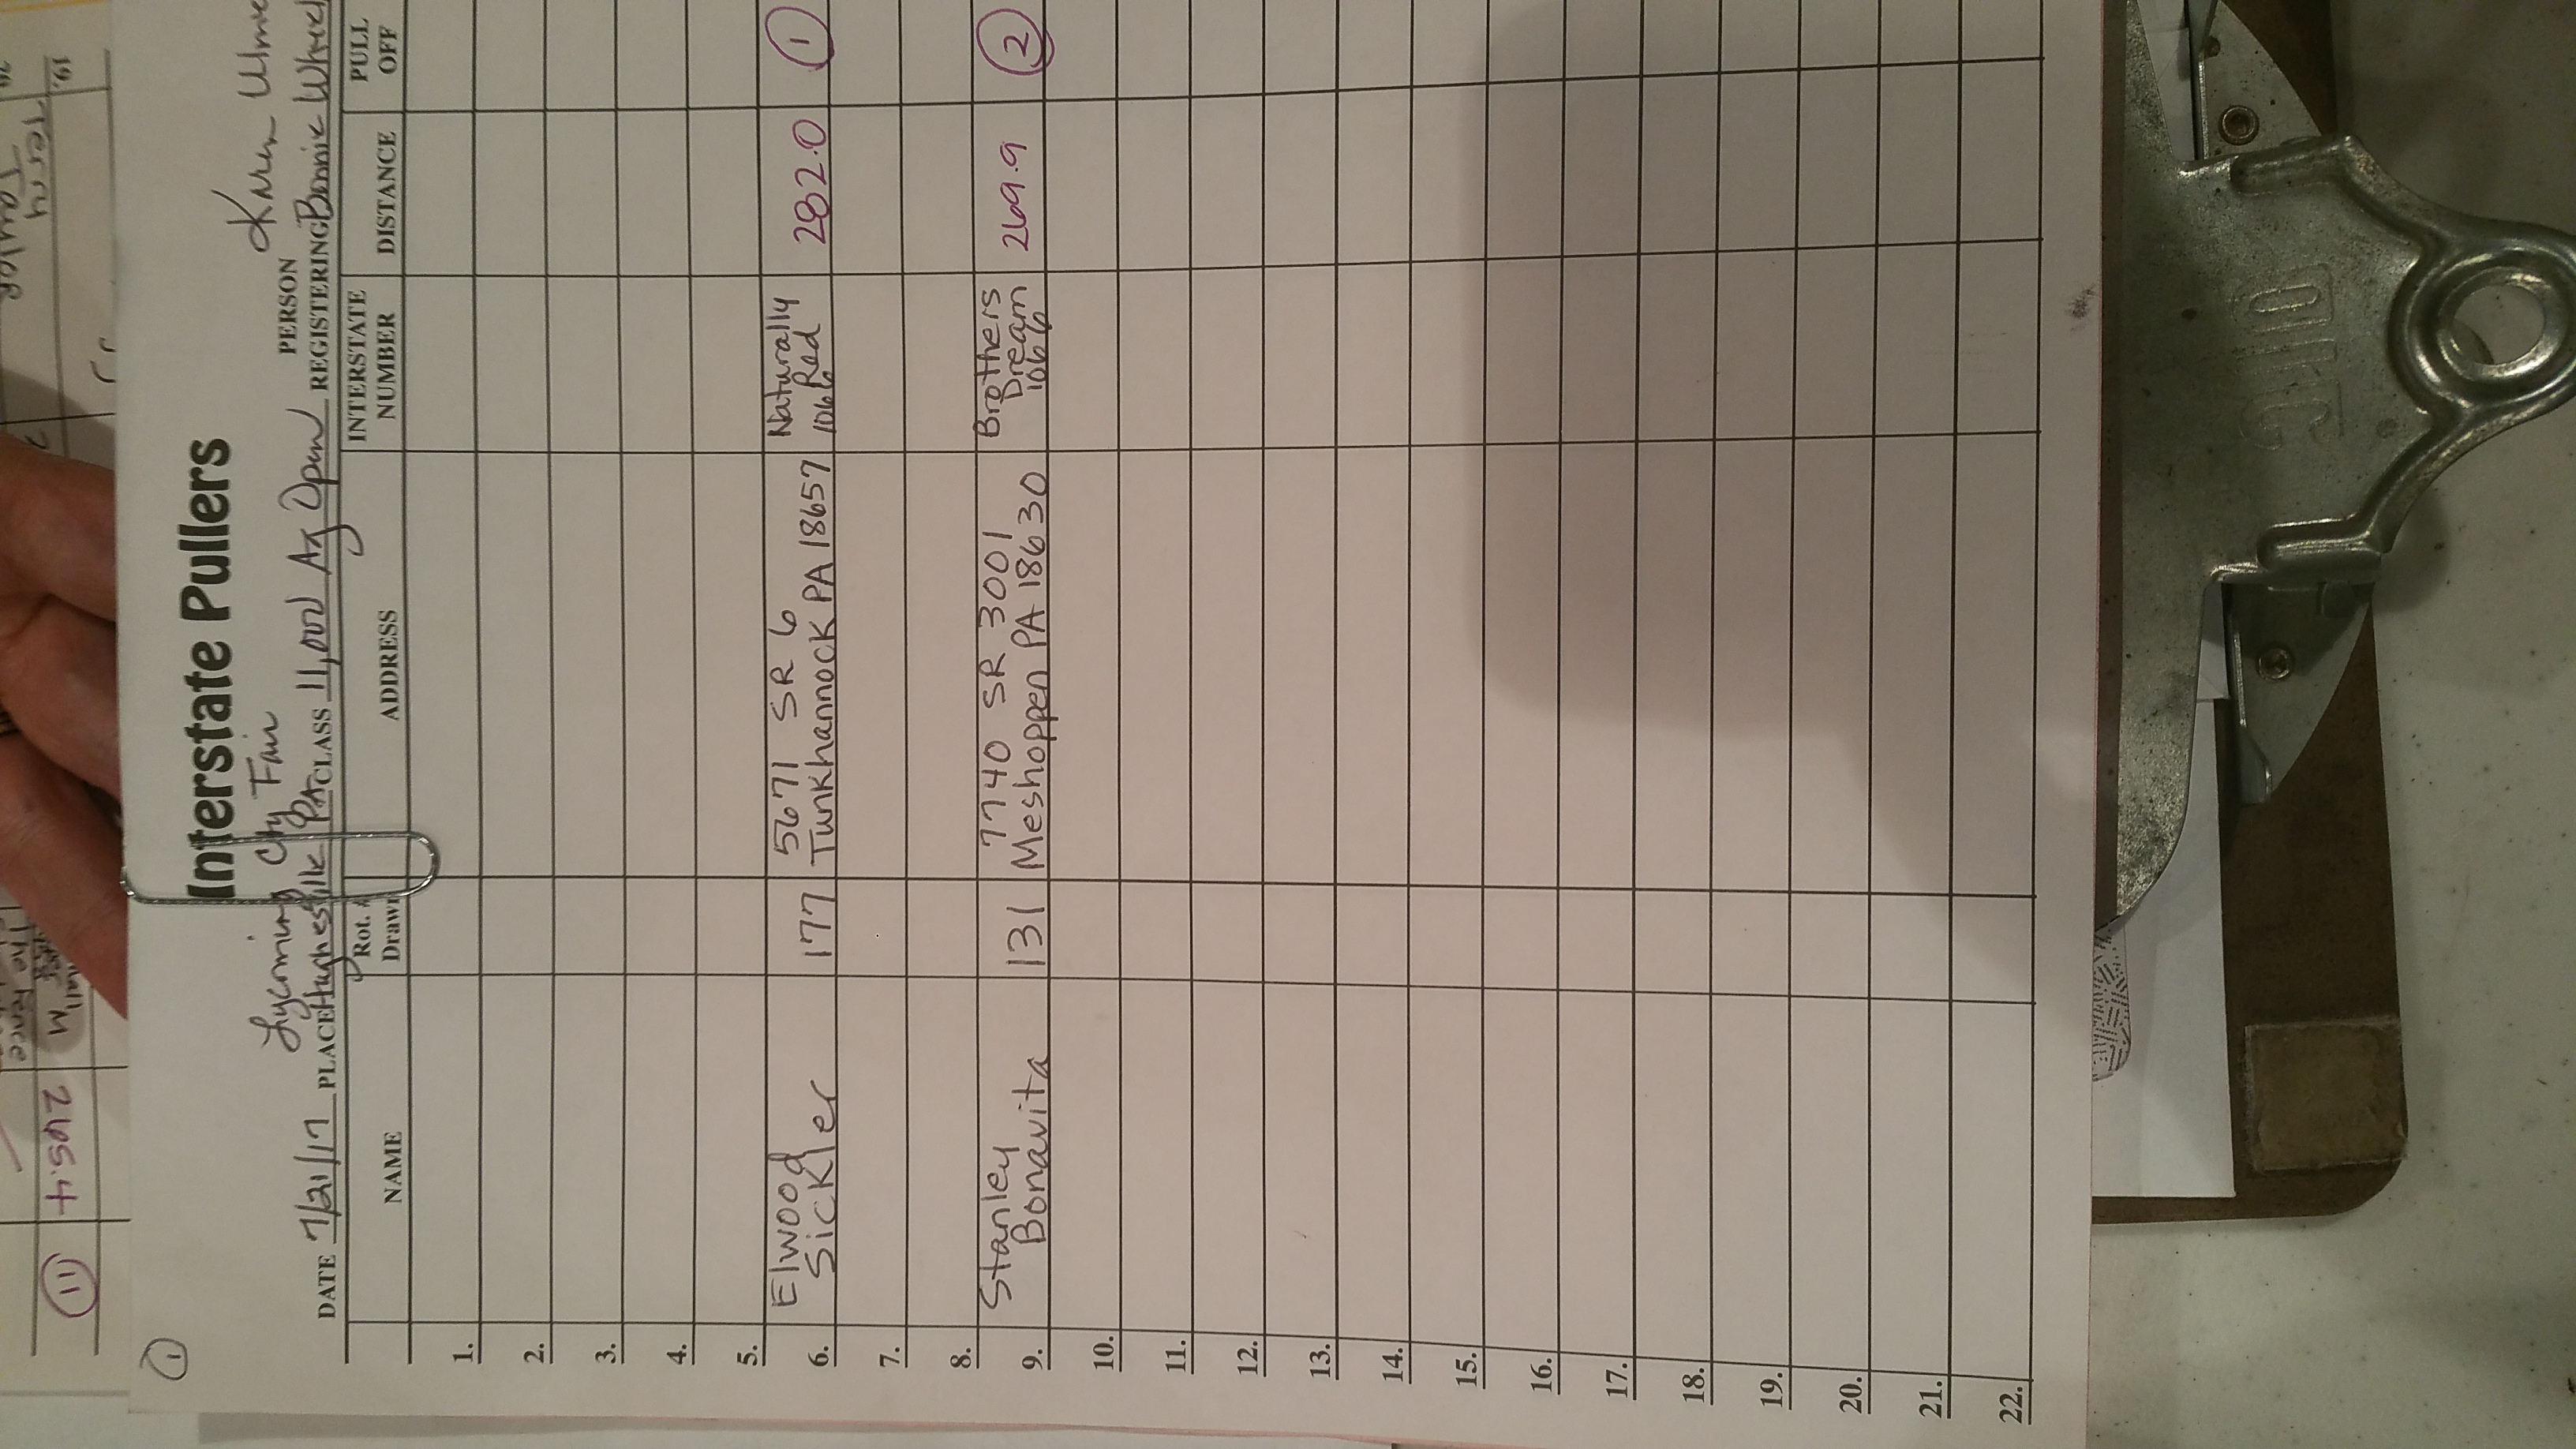 ①
Interstate Pullers
Lycoming Cty Fair
Karen
PERSON
DATE 7/21/17 PLACE Hughesville PA CLASS 11,000 Ag Open REGISTERING Bonnie
NAME Rot. Drawn ADDRESS INTERSTATE NUMBER DISTANCE PULL OFF
1.
2.
3.
4.
5.
6. Elwood Sickler 177 5671 SR 6 Tunkhannock PA 18657 Naturally Red 1066 282.0 ①
7.
8.
9. Stanley Bonavita 131 7740 SR 3001 Meshoppen PA 18630 Brothers Dream 1066 269.9 ②
10.
11.
12.
13.
14.
15.
16.
17.
18.
19.
20.
21.
22.
19.
Terry
The Fence
⑪